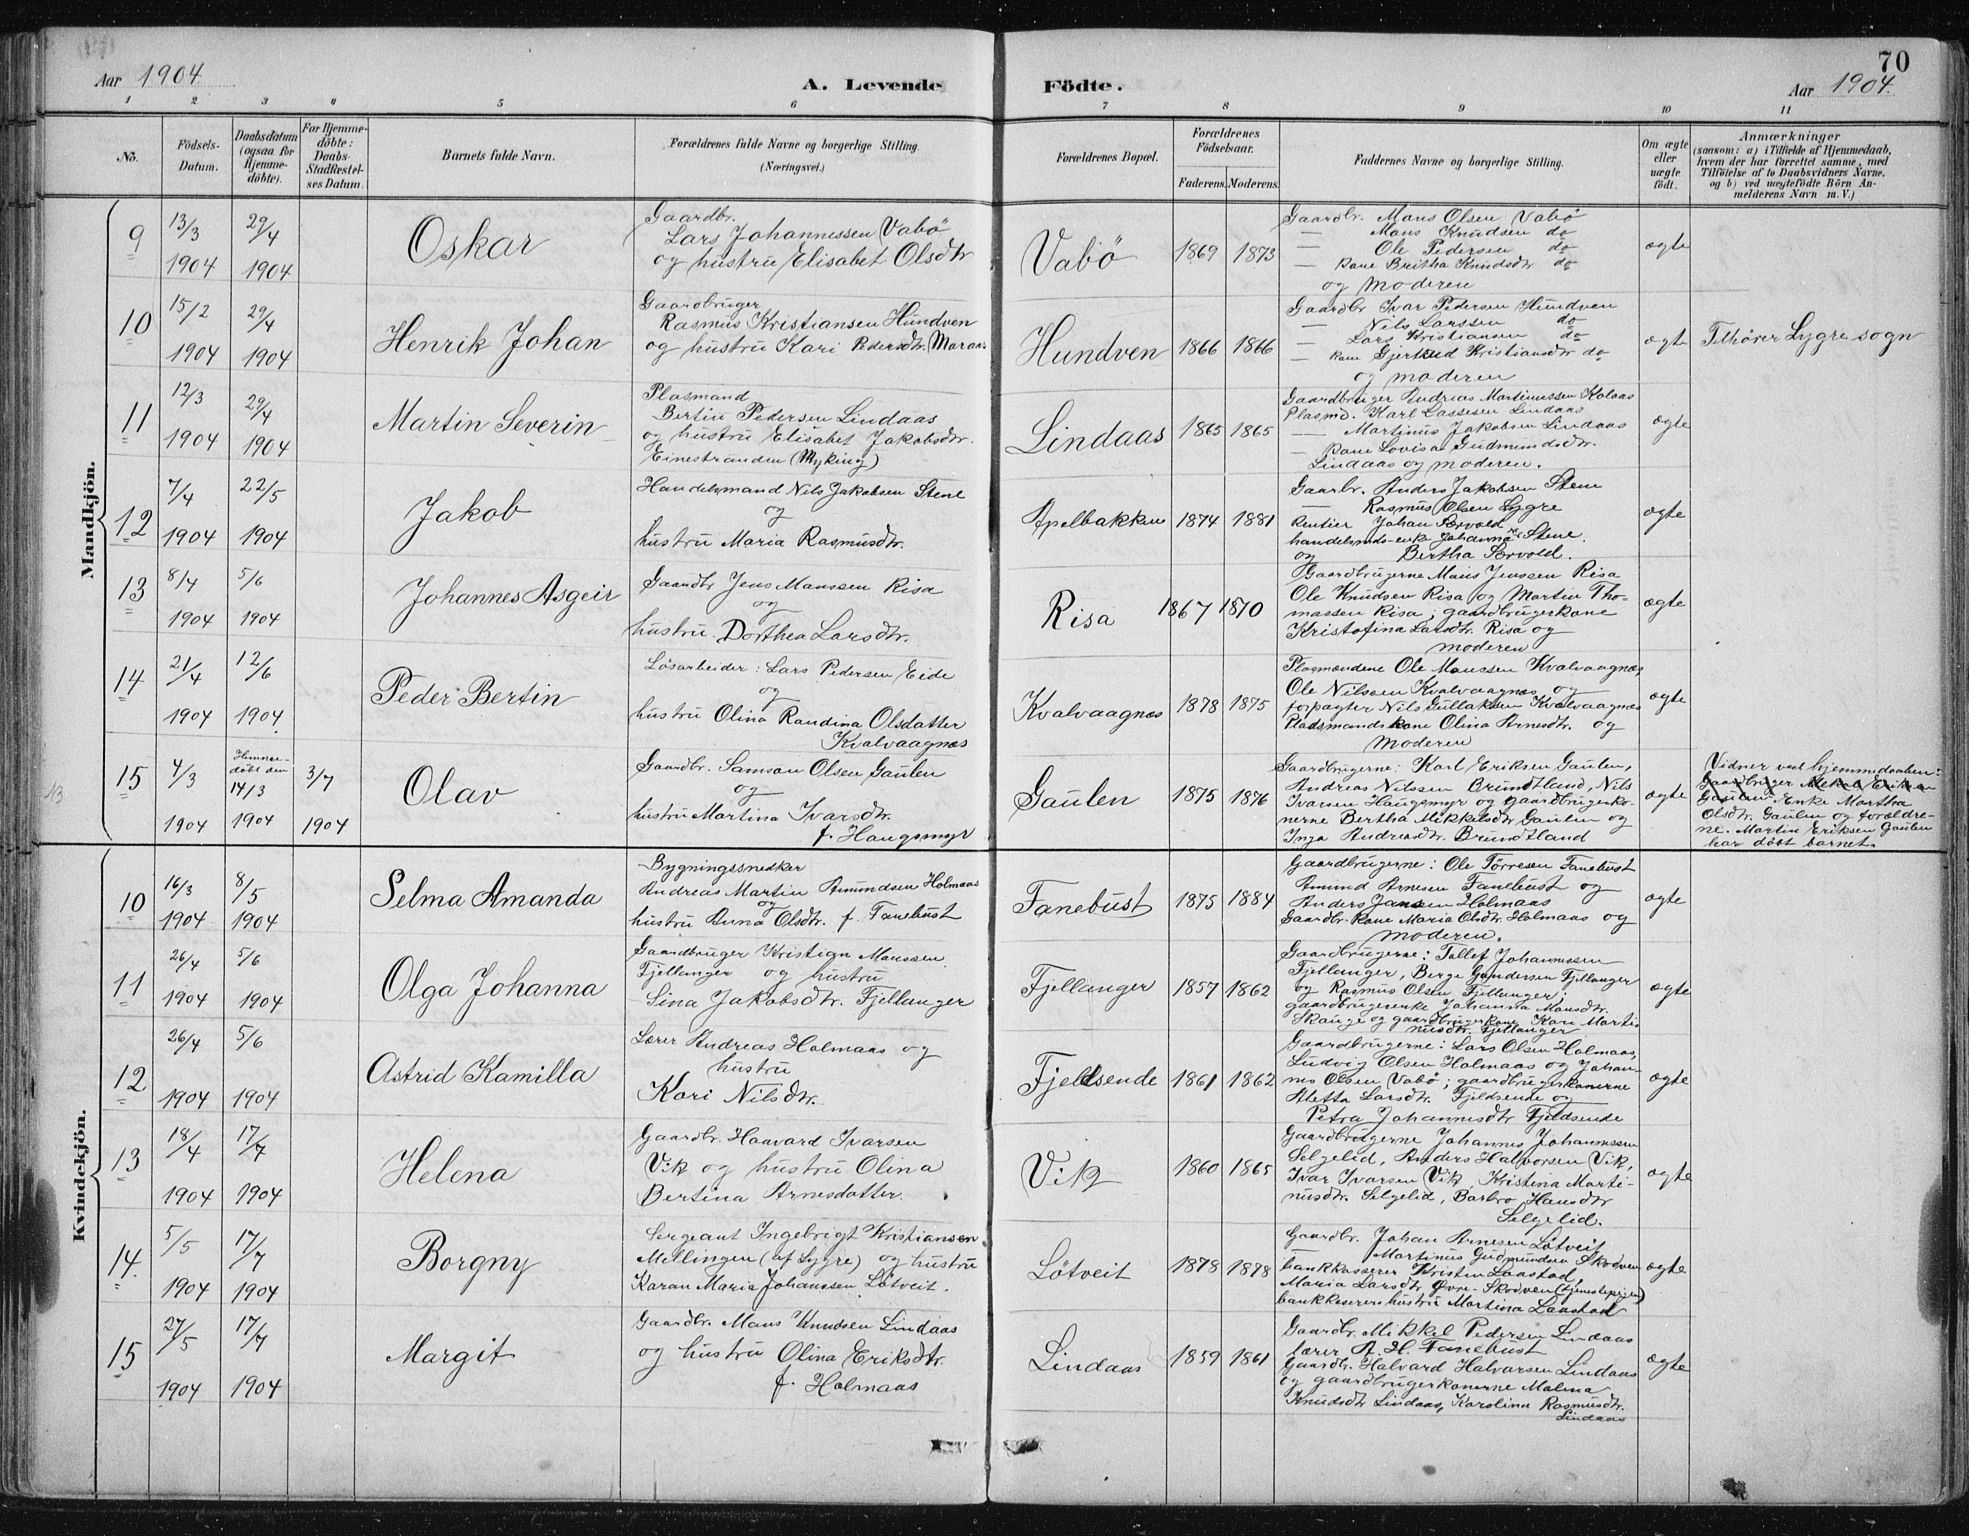 70
Aar 1904
A. Levende
Födte.
Aar 1904.
1 2 3 4 5 6 7 8 9 10 11
No.
Födsels-
Datum.
Daabsdatum
(ogsaa for
Hjemme-
döbte).
For Hjemme-
döbte:
Daabs-
Stadfæstel-
ses Datum.
Barnets fulde Navn.
Forældrenes fulde Navne og borgerlige Stilling.
(Næringsvei.)
Forældrenes Bopæl.
Forældrenes
Födselsaar.
Faderens. Moderens.
Faddernes Navne og borgerlige Stilling.
Om ægte
eller
uægte
födt.
Anmærkninger
(saasom: a) i Tilfælde af Hjemmedaab,
hvem der har forrettet samme, med
Tilföielse af to Daabsvidners Navne,
og b) ved uægtefödte Börn An-
melderens Navn m. V.)
Mandkjön.
9
13/3
1904
29/4
1904
Oskar
Gaardbr.
Lars Johannessen Vabö
og hustru Elisabet Olsdtr
Vabö
1869 1873
Gaardbr. Mons Olsen Vabö
— Mons Knudsen do
— Ole Pedersen do
— kone Britha Knudsdtr do
og moderen
ægte
10
15/2
1904
29/4
1904
Henrik Johan
Gaardbruger
Rasmus Kristiansen Hundven
og hustru Kari Pedersdtr. Maraas
Hundven
1866 1866
Gaardbr Ivar Pedersen Hundven
— Nils Larssen do
— Lars Kristiansen do
— kone Gjertrud Kristiansdtr do
og moderen
ægte
Tilhører Lygre sogn
11
12/3
1904
29/4
1904
Martin Severin
Plasmand
Bertin Pedersen Lindaas
og hustru Elisabet Jakobsdtr.
Einestranden (Myking)
Lindaas
1865 1865
Gaardbruger Andreas Martinussen Kolaas
Plasmd. Karl Lassesen Lindaas
— Martinus Jakobsen Lindaas
— kone Lovisa Gudmundsdtr.
Lindaas og moderen.
ægte
12
7/4
1904
22/5
1904
Jakob
Handelsmand Nils Jakobsen Stene
og
hustru Maria Rasmusdtr.
Apelbakken
1874 1881
Gaarbr. Anders Jakobsen Stene
— Rasmus Olsen Lygre
Rentier Johan Sørvold
handelsmds-enke Johanna Stene.
og Bertha Sørvold.
ægte
13
8/4
1904
5/6
1904
Johannes Asgeir
Gaardbr Jens Monssen Risa
og
hustru Dorthea Larsdtr.
Risa
1867 1870
Gaardbrugerne Mons Jenssen Risa
Ole Knudsen Risa og Morten Tho-
massen Risa; gaardbrugerkone
Kristofina Larsdtr. Risa og
moderen
ægte
14
21/4
1904
12/6
1904
Peder Bertin
Løsarbeider: Lars Pedersen Eide
og
hustru Olina Randina Olsdatter
Kvalvaagnæs
Kvalvaagnæs
1878 1875
Plasmændene Ole Monssen Kvalvaagnæs,
Ole Nilssen Kvalvaagnæs og
forpagter Nils Gullaksen Kvalvaagnæs
Pladsmandskone Olina Arnesdtr. og
moderen
ægte
15
4/3
1904
Hjemme-
döbt den
14/3
1904
3/7
1904
Olav
Gaardbr. Samson Olsen Gaulen
og
hustru Martina Ivarsdtr.
f. Haugsmyr
Gaulen
1875 1876
Gaardbrugerne: Karl Eriksen Gaulen,
Andreas Nilssen Brundtland, Nils
Ivarsen Haugsmyr og gaardbrugerko-
nerne Bertha Mikkelsdtr. Gaulen og
Inga Andreasdtr. Brundtland
ægte
Vidner ved hjemmedaaben:
Gaardbruger Eriksen
Gaulen Enke Martha
Olsdtr. Gaulen og forældre-
ne. Martin Eriksen Gaulen
har döbt barnet.
Kvindekjön.
10
16/3
1904
8/5
1904
Selma Amanda
Bygningssnedker
Andreas Martin Amundsen Holmaas
og
hustru Anna Olsdtr. f. Fanebust
Fanebust
1875 1884
Gaardbrugerne: Ole Tørresen Fanebust
Amund Arnesen Fanebust og
Anders Jansen Holmaas
Gaardbr. Kone Maria Olsdtr. Holmaas og
moderen.
ægte
11
26/4
1904
5/6
1904
Olga Johanna
Gaardbruger Kristian Monssen
Fjellanger og hustru
Sina Jakobsdtr. Fjellanger
Fjellanger
1857 1862
Gaardbrugerne: Tollef Johannessen
Fjellanger, Berge Gundersen Fjellanger
og Rasmus Olsen Fjellanger;
gaardbrugerenke Johanna Monsdtr.
Skauge og gaardbrugerkone Kari Marti-
nusdtr. Fjellanger
ægte
12
26/4
1904
5/6
1904
Astrid Kamilla
Lærer Andreas Holmaas og
hustru
Kari Nilsdtr.
Fjeldsende
1861 1862
Gaardbrugerne: Lars Olsen Holmaas,
Ludvig Olsen Holmaas og Johan-
nes Olsen Vabö; gaardbrugerkonerne
Metta Larsdtr. Fjeldsende og
Petra Johannesdtr Fjeldsende
ægte
13
18/4
1904
17/7
1904
Helena
Gaardbr. Haavard Ivarsen
Vik og hustru Olina
Bertina Arnesdatter.
Vik
1860 1865
Gaardbrugerne Johannes Johannessen
Selgelid, Anders Halvorsen Vik,
Ivar Ivarsen Vik, Kristina Marti-
nusdtr. Selgelid, Barbro Hansdtr
Selgelid.
ægte
14.
5/5
1904
17/7
1904
Borgny
Sergeant Ingebrigt Kristiansen
Mellingen (af Lygre) og hustru
Karan Maria Johanssen Lötveit.
Lötveit
1878 1878
Gaardbr. Johan Arnesen Lötveit
— Martinus Gudmundsen Skodven
bankkasserer Kristen Laastad,
Maria Larsdtr. Øvre-Skodven (tjenestepige)
bankkaserers hustru Martina Laastad
ægte
15
27/5
1904
17/7
1904
Margit
Gaardbr. Mons Knudsen Lindaas
og hustru Olina Eriksdtr.
f. Holmaas
Lindaas
1859 1861
Gaardbr. Mikkel Pedersen Lindaas
lærer A. H. Fanebust
Gaardbr. Halvard Halvarsen Lindaas
og gaardbrugerkonerne Malina
Knudsdtr Lindaas, Karolina Rasmusdtr.
Lindaas
ægte